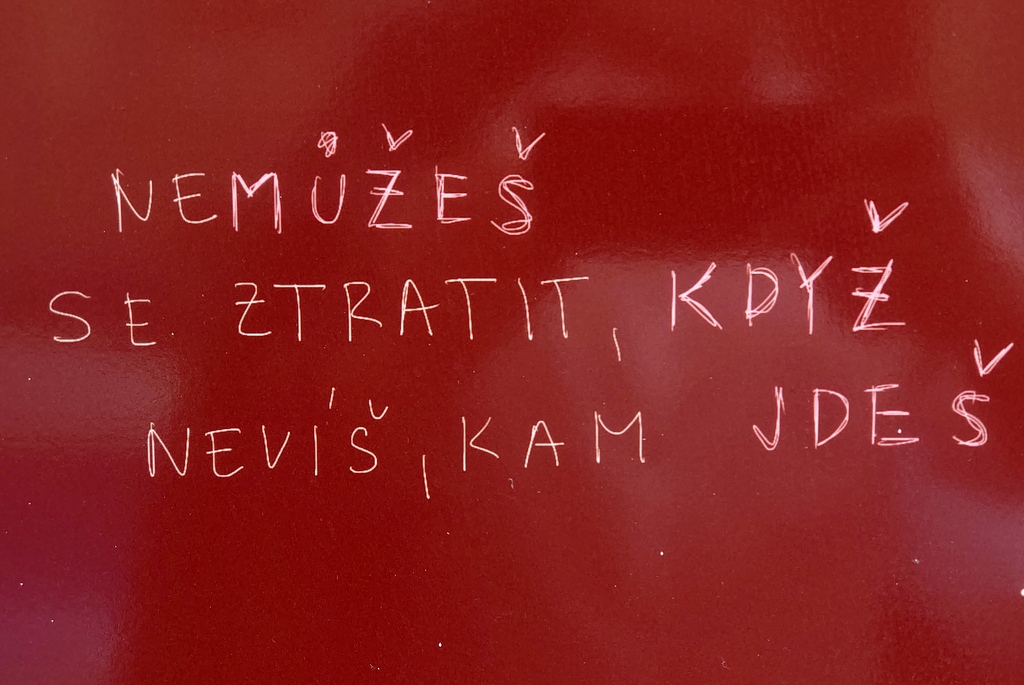 NEMŮŽEŠ
SE ZTRATIT, KDYŽ
NEVÍŠ, KAM JDEŠ